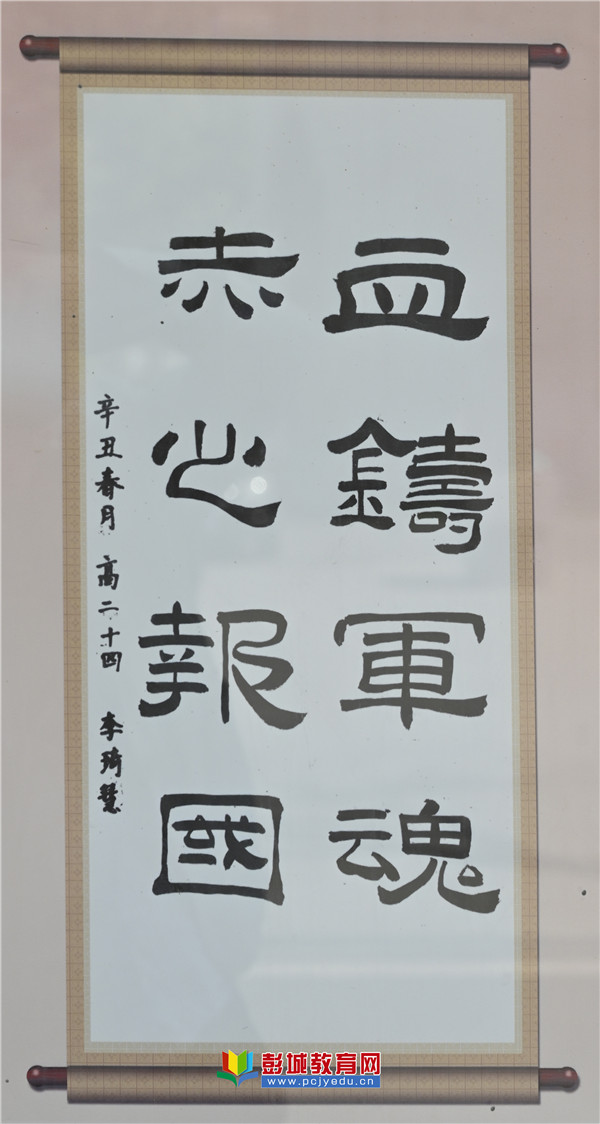 血鑄軍魂
赤心報國
辛丑春月 高二十四 李琦慧
彭城教育网
www.pcjyedu.cn